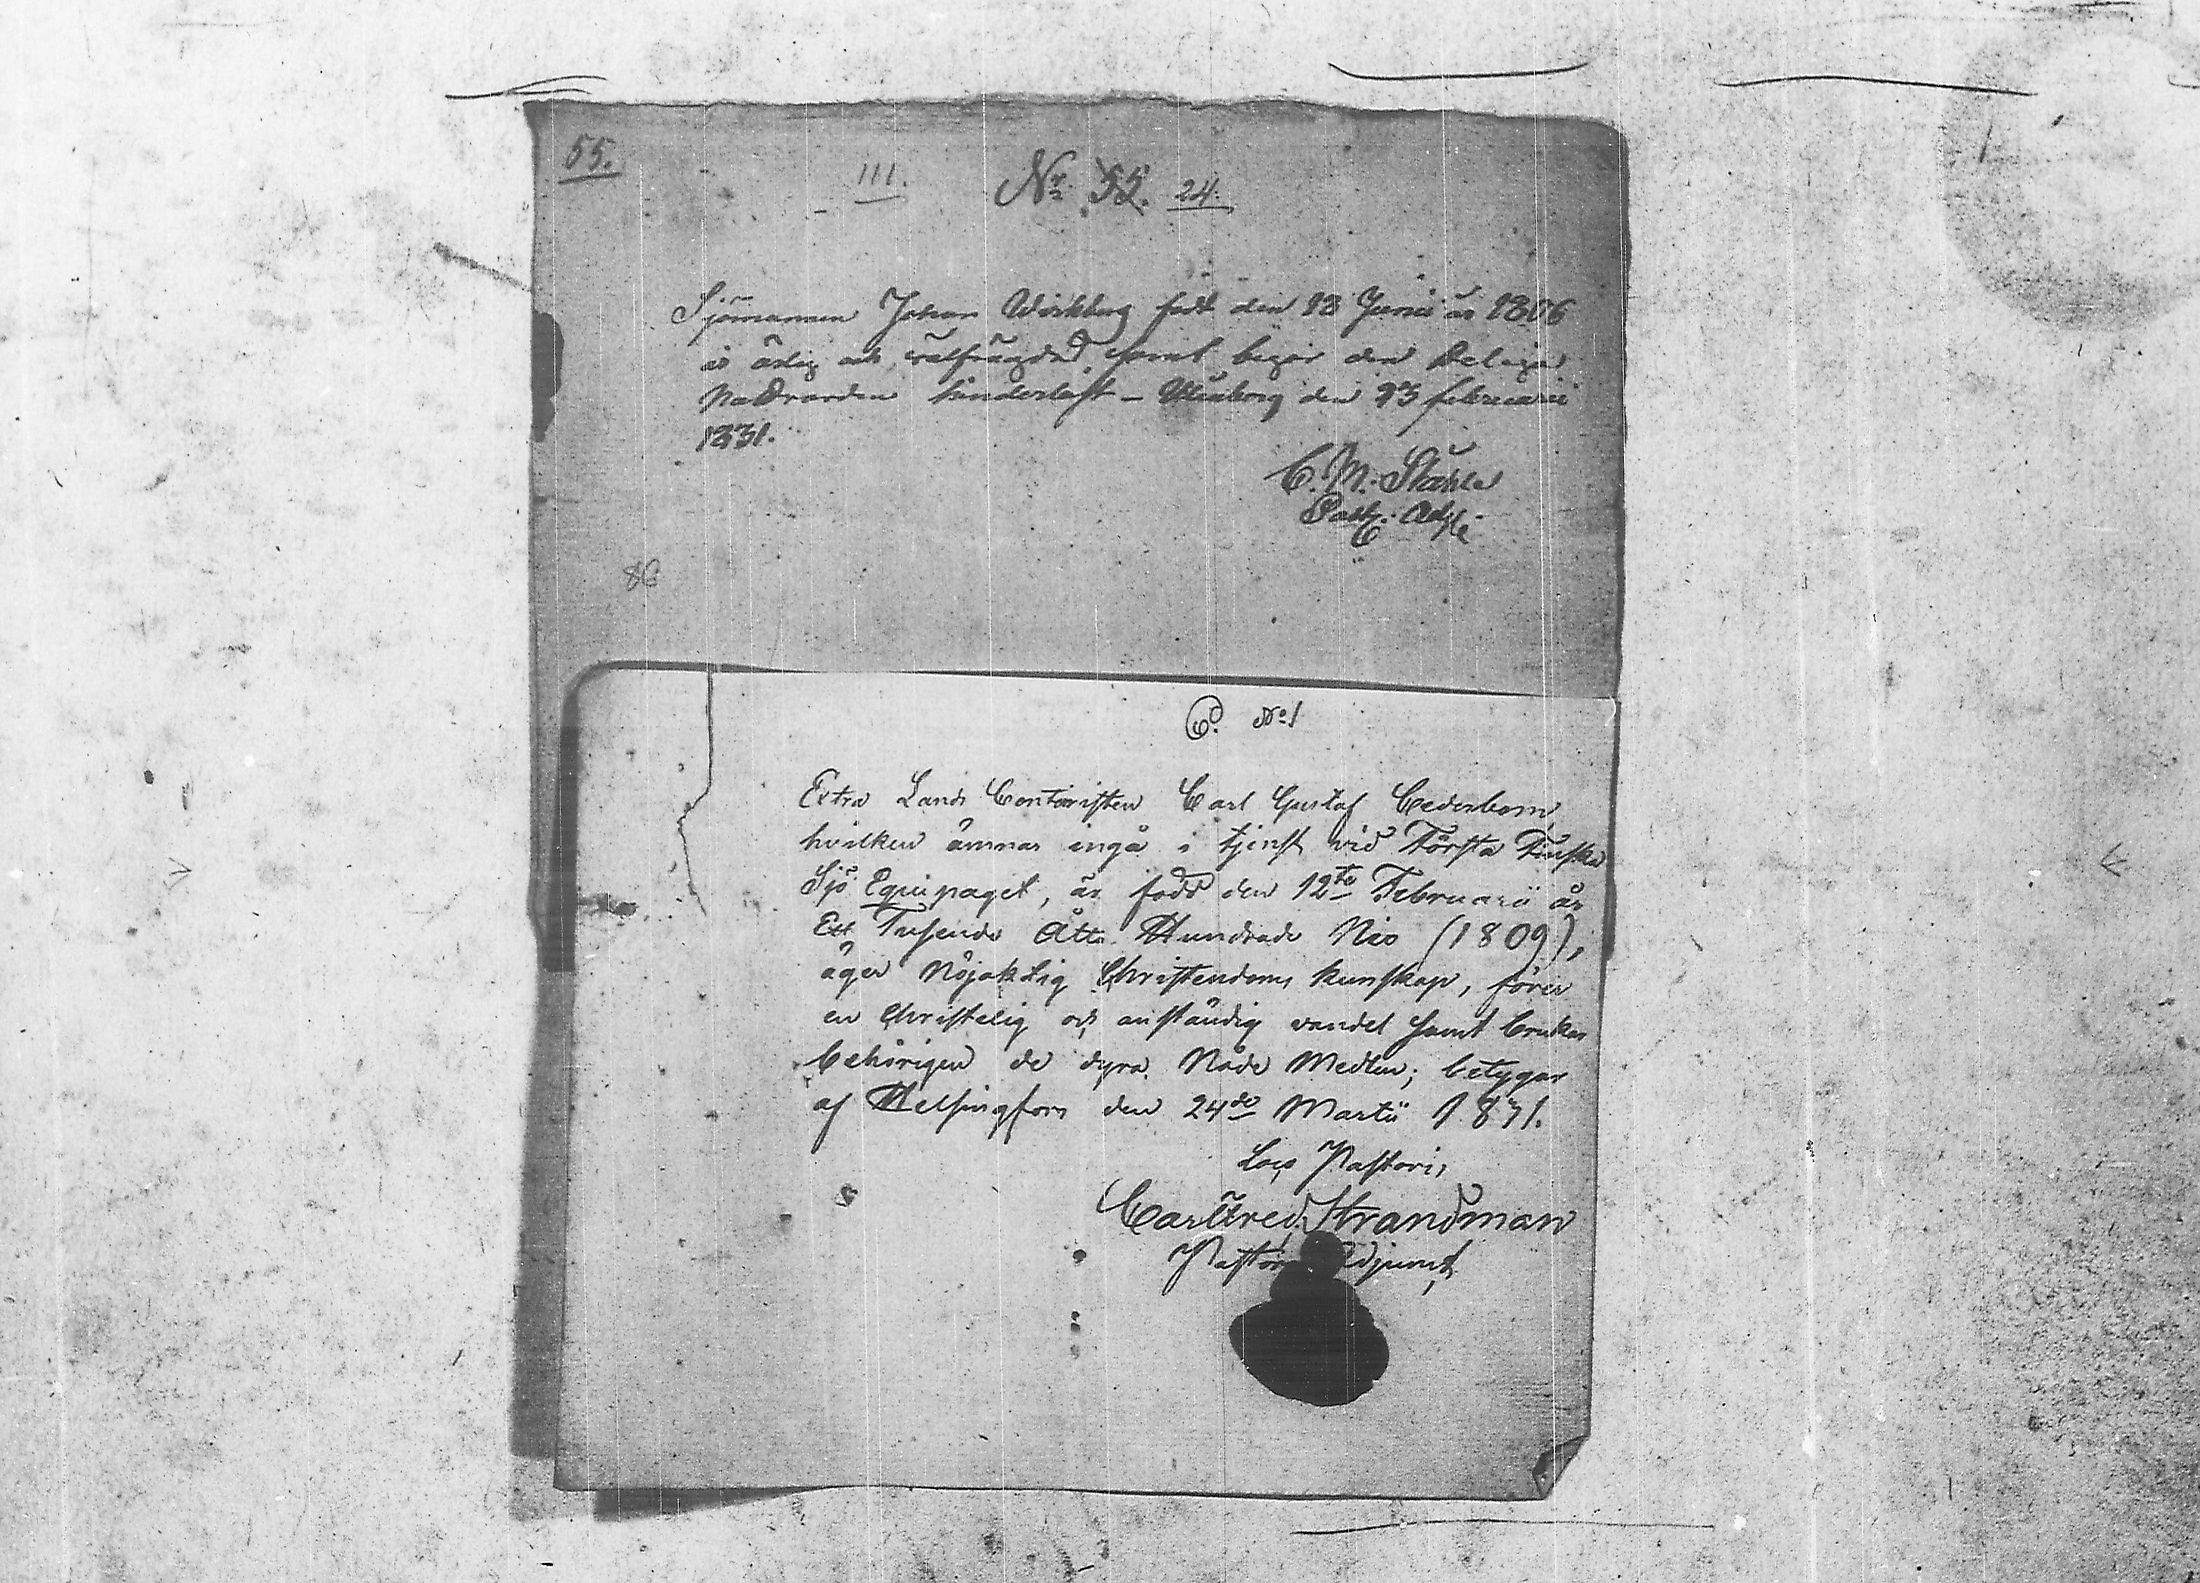 55.
111. No 52. 24.
Sjömannen Johan Wickberg född den 18 Junii år 1806
är ärlig och välfrägdad samt begår den Heliga
Nattvarden hinderlöst – Uleåborg den 23 februarii
1831.
C. M. Ståhle
Past: Adj:
86
C. No 1
Extra Lands Contoristen Carl Gustaf Cederbom,
hvilken ämnar ingå i tjenst vid Första Finska
Sjö Equipaget, är född den 12te Februarii år
Ett Tusende Åtta Hundrade Nio (1809),
äger Nöjaktig Christendoms kunskap, förer
en Christelig och anständig vandel samt brukar
behörigen de dyra Nåde Medlen; betygar
af Helsingfors den 24de Martii 1831.
Loco Pastoris,
Carl Fred. Strandman
Pastors Adjunct,